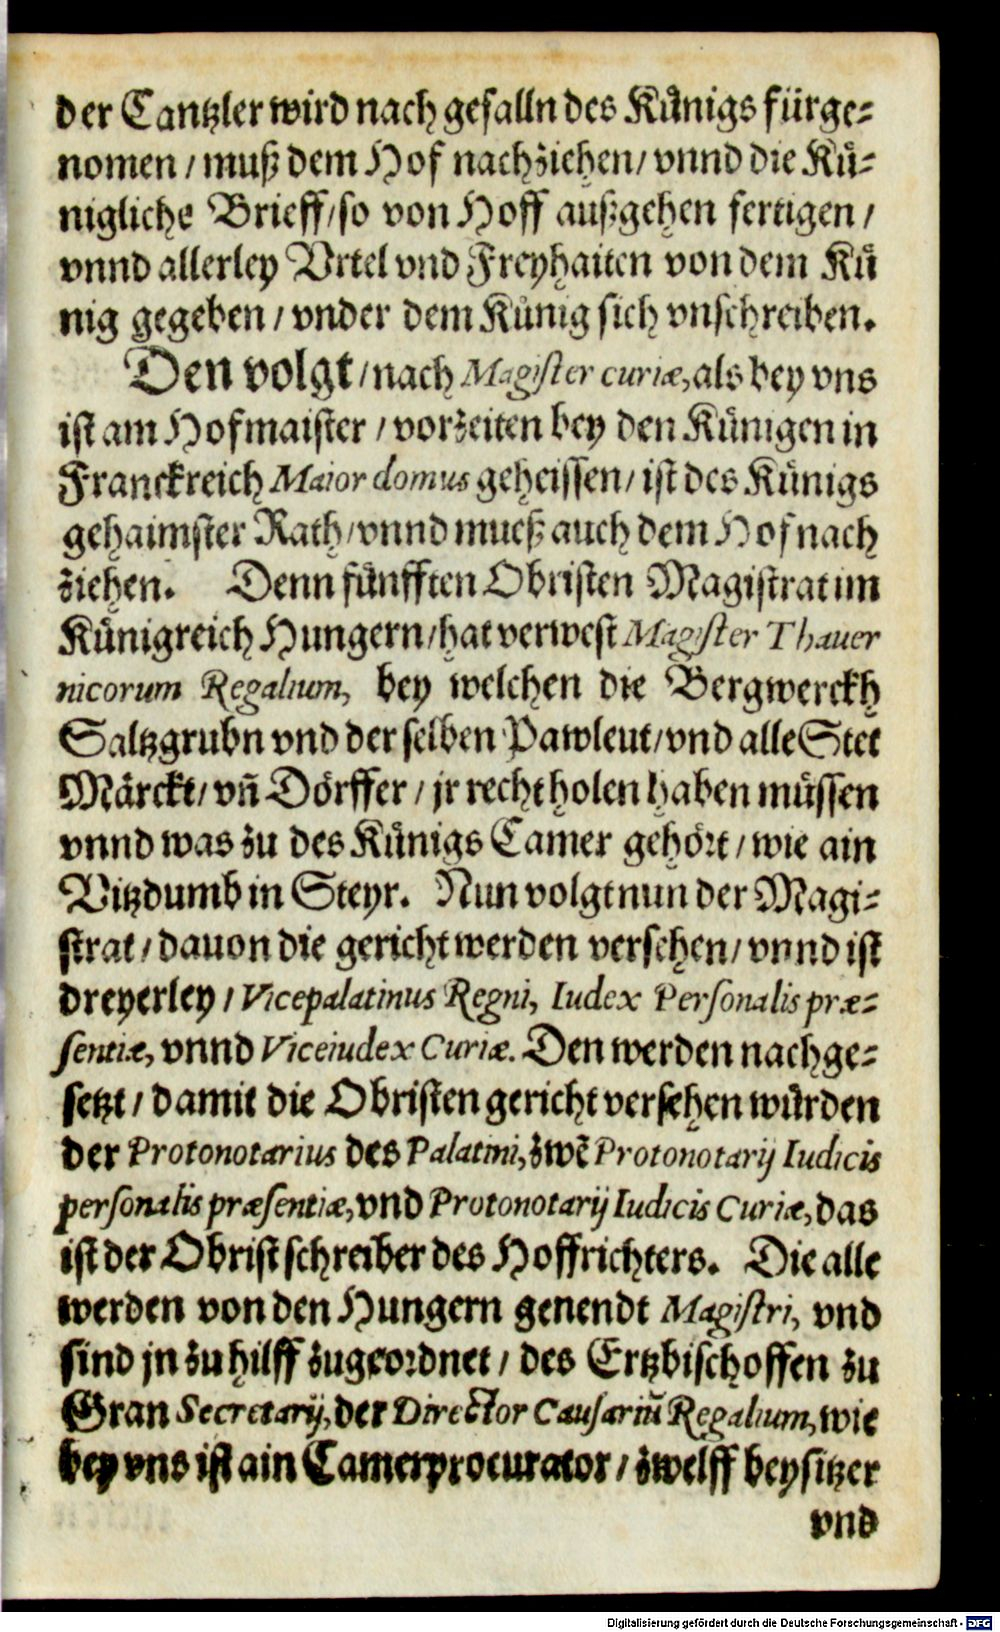 der Cantzler wird nach gefalln des Kůnigs fürge-
nomen / muß dem Hof nachziehen / vnnd die Ků-
nigliche Brieff / so von Hoff außgehen fertigen /
vnnd allerley Vrtel vnd Freyhaiten von dem Ků
nig gegeben / vnder dem Kůnig sich vnschreiben.
Den volgt / nach Magister curiæ, als bey vns
ist am Hofmaister / vorzeiten bey den Kůnigen in
Franckreich Maior domus geheissen / ist des Kůnigs
gehaimster Rath / vnnd mueß auch dem Hof nach
ziehen. Denn fůnfften Obristen Magistrat im
Kůnigreich Hungern / hat verwest Magister Thauer
nicorum Regalium, bey welchen die Bergwerckh
Saltzgrubn vnd der selben Pawleut / vnd alle Stet
Märckt / vñ Dörffer / jr recht holen haben můssen
vnnd was zu des Kůnigs Camer gehört / wie ain
Vitzdumb in Steyr. Nun volgt nun der Magi-
strat / dauon die gericht werden versehen / vnnd ist
dreyerley / Vicepalatinus Regni, Iudex Personalis præ-
sentiæ, vnnd Viceiudex Curiæ. Den werden nachge-
setzt / damit die Obristen gericht versehen wůrden
der Protonotarius des Palatini, zwē Protonotarij Iudicis
personalis præsentiæ, vnd Protonotarij Iudicis Curiæ, das
ist der Obrist schreiber des Hoffrichters. Die alle
werden von den Hungern genendt Magistri, vnd
sind jn zu hilff zugeordnet / des Ertzbischoffen zu
Gran Secretarij, der Director Causariū Regalium, wie
bey vns ist ain Camerprocurator / zwelff beysitzer
vnd
Digitalisierung gefördert durch die Deutsche Forschungsgemeinschaft - DFG